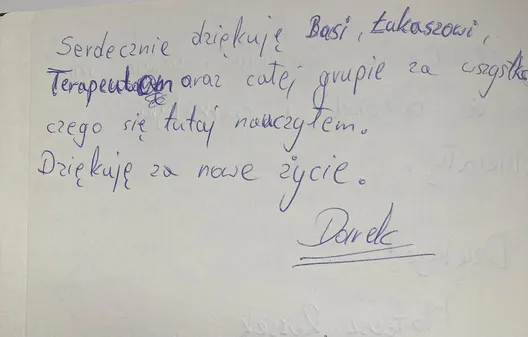 Serdecznie dziękuję Basi, Łukaszowi,
Terapeutom oraz całej grupie za wszystko
czego się tutaj nauczyłem.
Dziękuję za nowe życie.
Darek